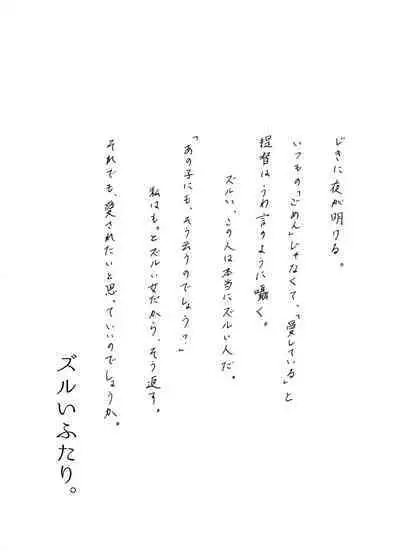 じきに夜が明ける。
いつもの「ごめん」じゃなくて、「愛している」と
提督はうわ言のように囁く。
ズルい、この人は本当にズルい人だ。
「あの子にも、そう云うのでしょう?」
私はもっとズルい女だから、そう返す。
それでも、愛されたいと思っていいのでしょうか。
ズルいふたり。